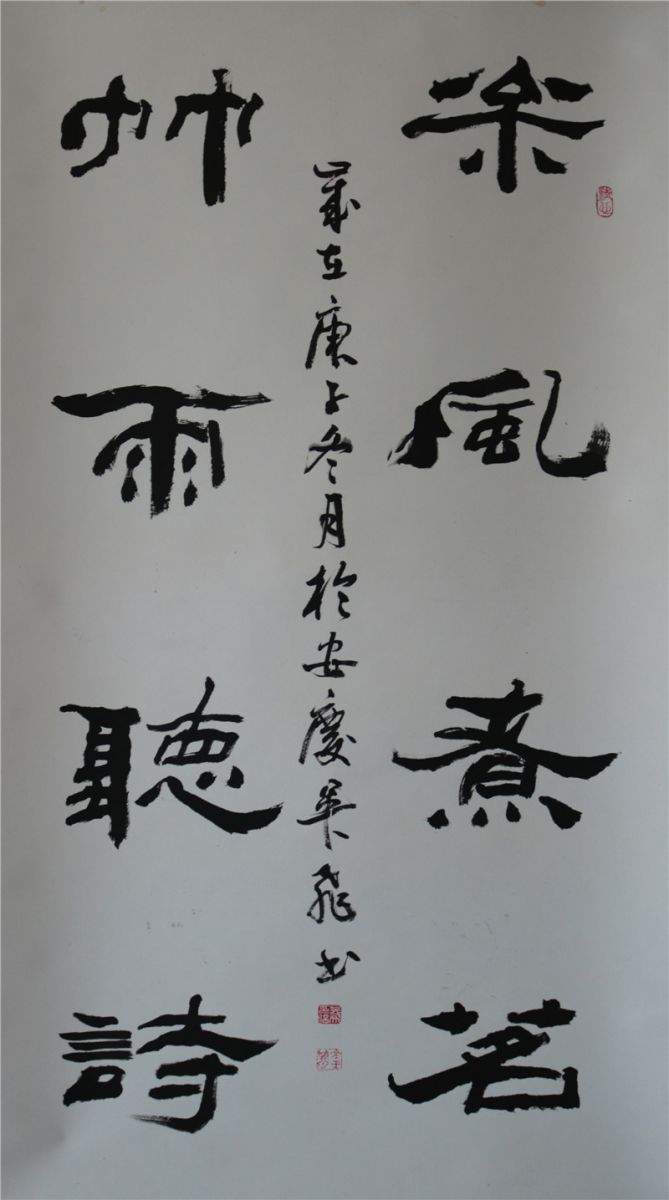 枀風煮茗
竹雨聽詩
歲在庚子冬月於安慶吴飛书